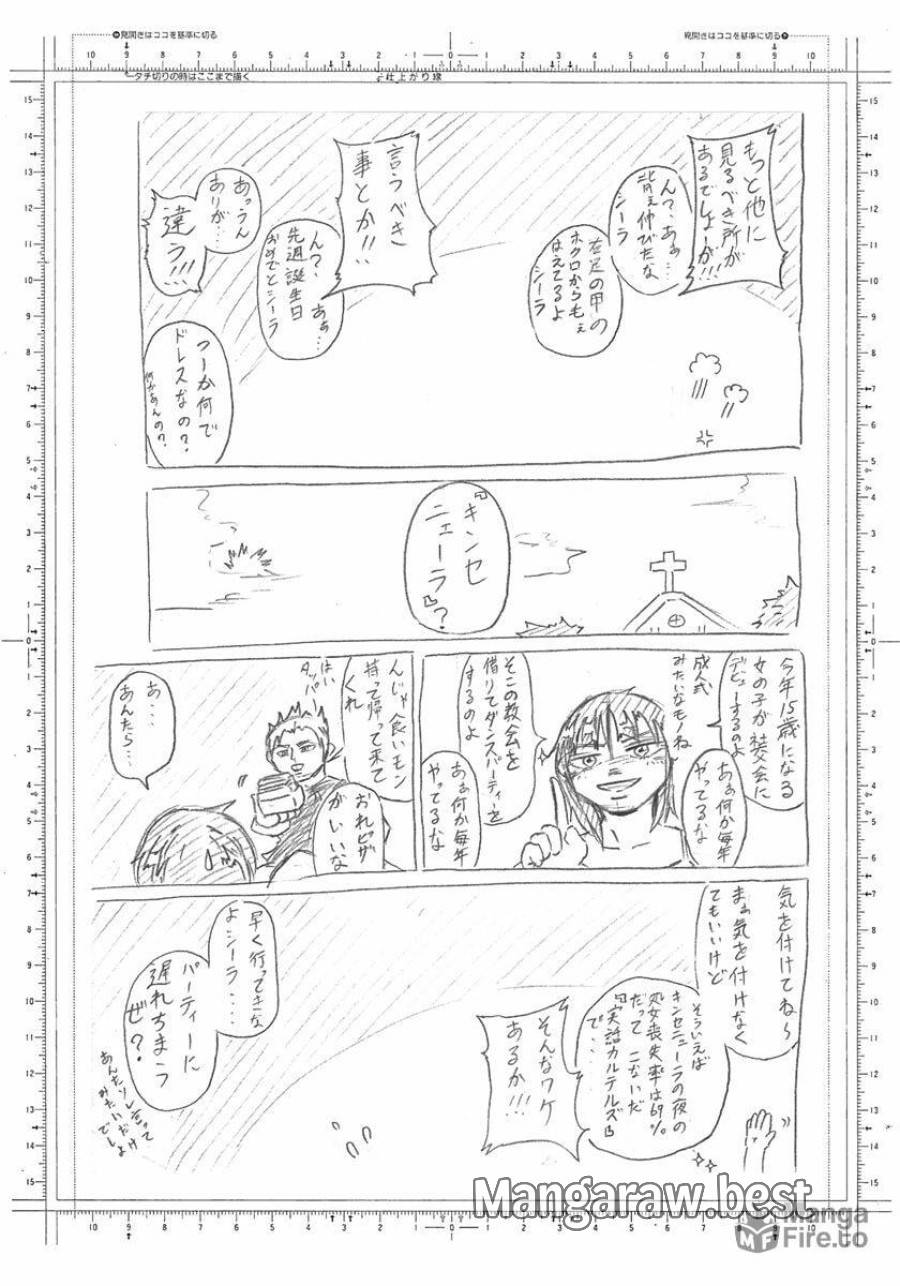 見開きはココを基準に切る
見開きはココを基準に切る
タチ切りの時はここまで描く
仕上がり線
もっと他に
見るべき所が
あるでしょーが!!!
ん?、あぁ…
背ぇ伸びたな
シーラ
左足の甲の
ホクロからもぇ
はえてるよ
シーラ
言うべき
事とか!!!
ん?
あぁ…
先週誕生日
おめでとシーラ
あっうん
ありが…
違う!!!
つーか何で
ドレスなの?
何があんの?
『キンセ
ニェーラ』?
今年15歳になる
女の子が社交会に
デビューするのよ
成人式
みたいなモノね
あぁ何か毎年
やってるな
そこの教会を
借りてダンスパーティーを
するのよ
あぁ何か毎年
やってるな
んじゃ食いモン
持って帰って来て
くれ
はい
タッパ
おれピザ
がいいな
あ…
あんたら…
気を付けてね〜
まぁ気を付けなく
てもいいけど
そういえば
キンセニェーラの夜の
処女喪失率は69%
だって こないだ
『実話カルテルズ』
で…
そんなワケ
あるか!!!
早く行ってきな
よシーラ…
パーティーに
遅れちまう
ぜ?
あんたソレ言って
みたいだけ
でしょ
Mangaraw.best
MF
Manga
Fire.to